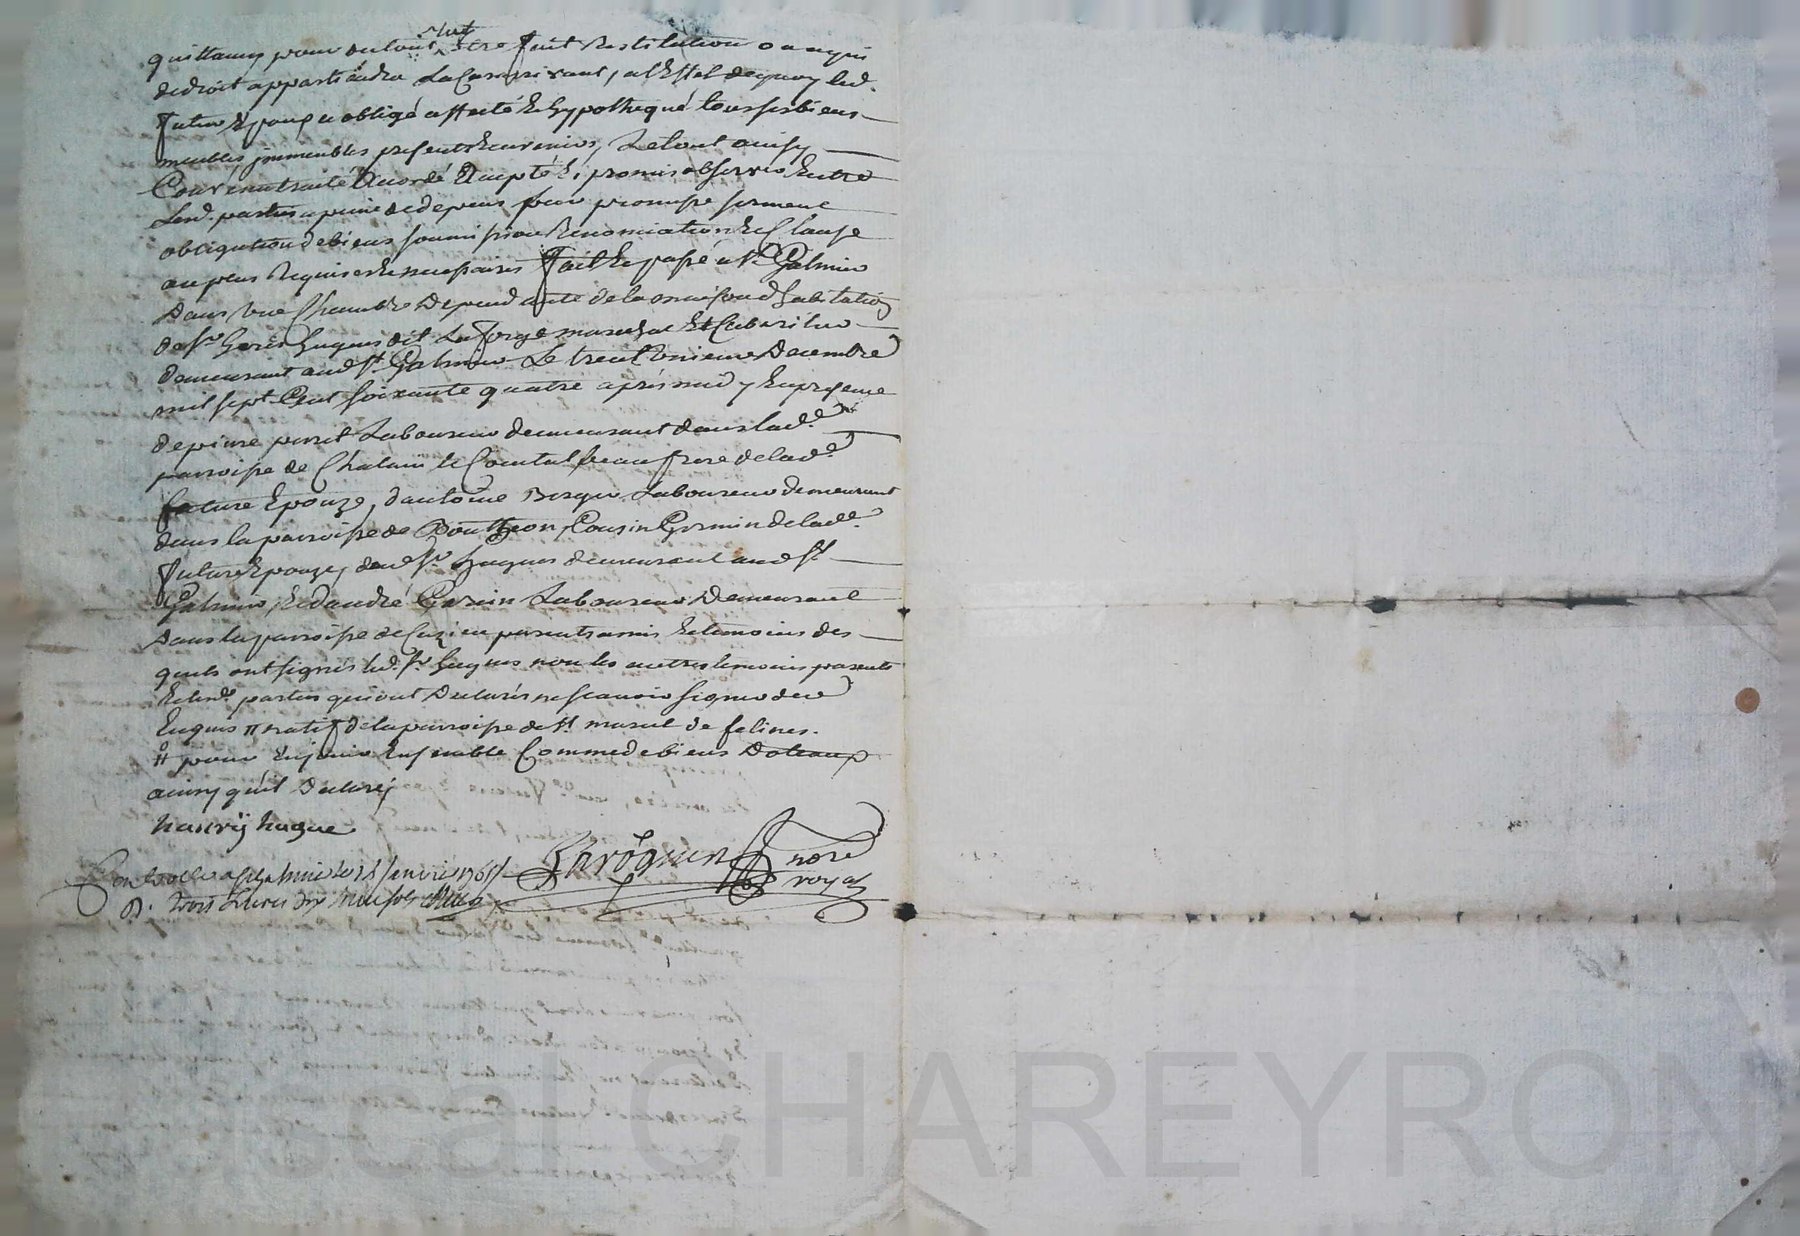 quittancer pour du tout estre fait restitution a a qui
de droit appartiendra le cas arrivant, a l'effet de quoy led.
futur Epoux a obligé affecté & hypothequé tous ses biens
meubles jmmeubles presents & avenirs, Le tout ainsy
Convenu traité Accordé Accepté & promis observer Entre
Lesd. parties a peine de depens foy promesse serment
obligation de biens soumission Renonciation & Clause
au plus Requises & necessaires fait & passé a St Galmier
Dans une Chambre Dependante de la maison d'habitation
de Sr hugues dit Laforge marechal & Cabaretier
demeurant aud St. Galmier Le trente unieme Decembre
mil sept Cent soixante quatre après midy En presence
de piere Laboureur demeurant dans lad.e
parroisse de Chalain le Comtal beau frere de lad.e
future Epouze, d'antoine Laboureur demeurant
dans la parroisse de Boutheon Cousin Germin de lad.e
future Epouze, dud Sr. hugues demeurant aud St
Galmier, & d'andré Laboureur Demeurant
Dans la parroisse de Cuzieu parents amis & temoins des
quels ont signés led. Sr hugues non les autres temoins parents
& lesd. parties qui ont Declarés ne scavoir signer de ce
Enquis # natif de la parroisse de St. marcel de felines.
# pour Enjouir Ensemble Comme de biens Dotaux
ainsy qu'il Declare,
hanrij hugue
nore
royal
Controllé a St galmier le janvier 1765
R. trois Livres dix neuf sols
Pascal CHAREYRON